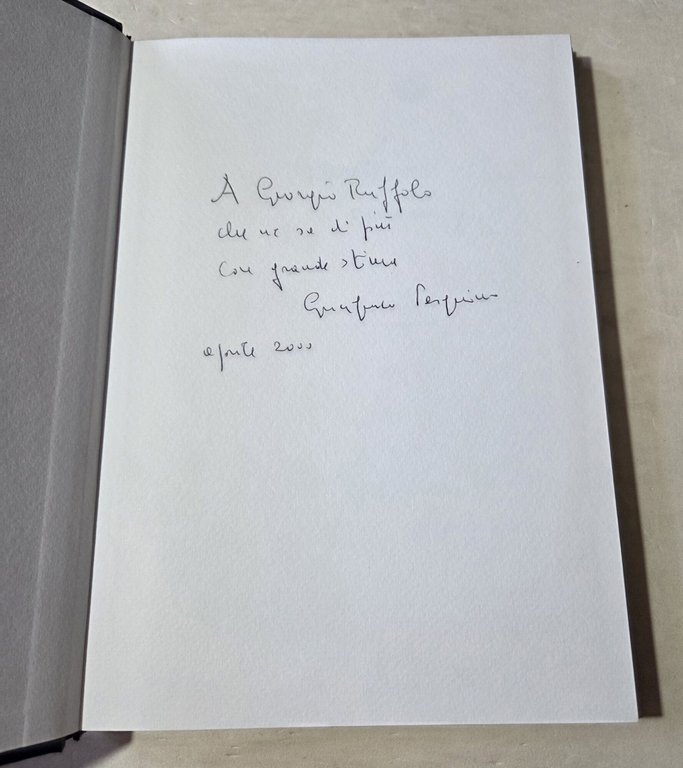 A Giorgio Ruffolo
che ne sa di più
con grande stima
Gianfranco Pasquino
aprile 2000